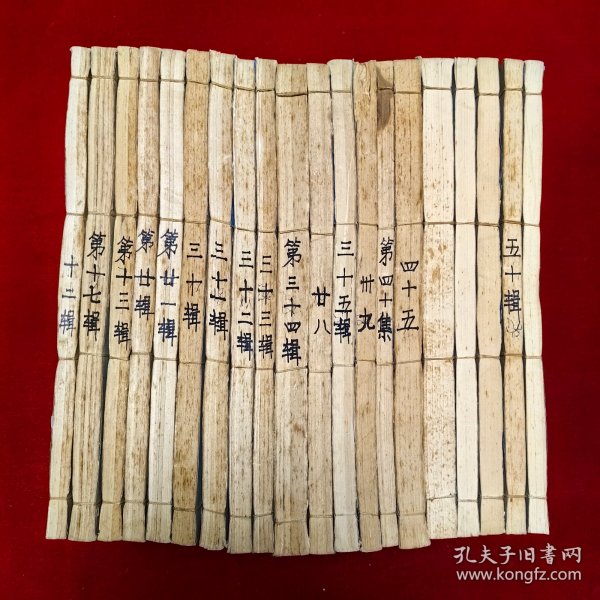 十三辑
第十七辑
第十三辑
第廿辑
第廿一辑
三十辑
三十一辑
三十二辑
三十三辑
第三十四辑
廿八
三十五辑
卅九
第四十集
四十五
五十辑
孔夫子旧书网
www.kongfz.com